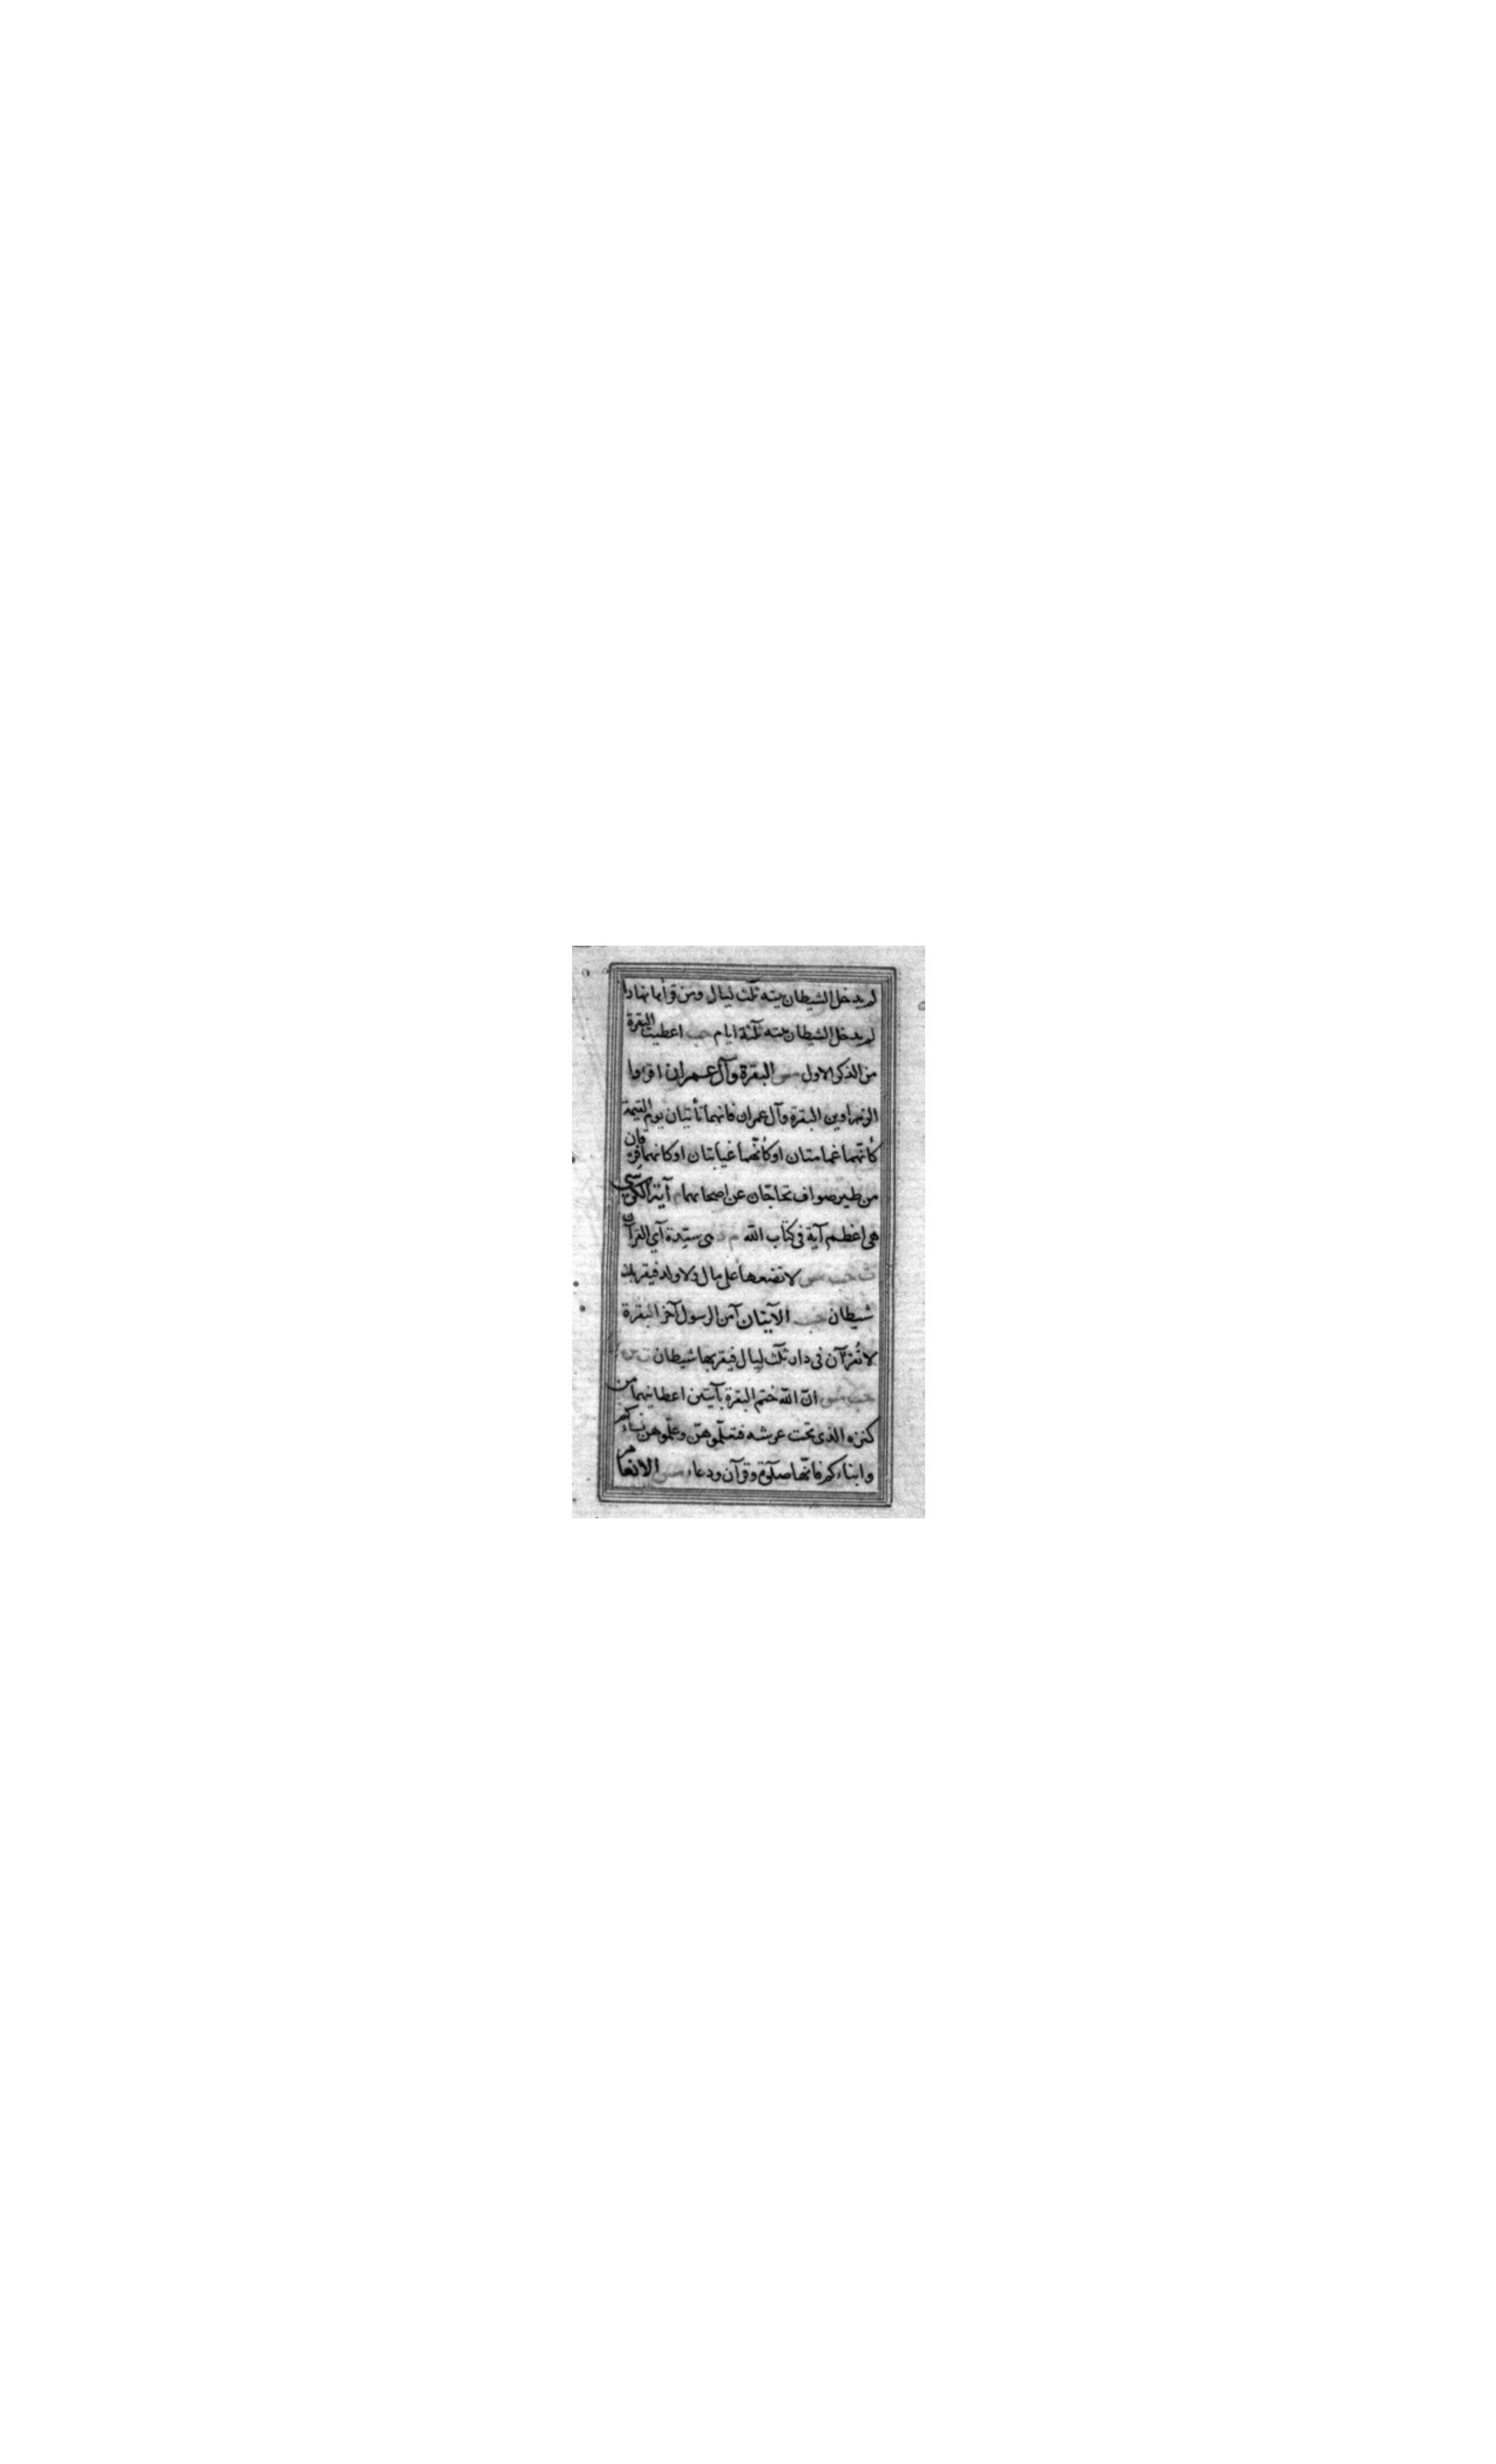 لم يدخل الشيطان بيته ثلث ليال ومن قرأها نهارا
لم يدخل الشيطان بيته ثلثة ايام حب اعطيت البقرة
من الذكر الاول مس البقرة وآل عمران اقرؤا
الزهراوين البقرة وآل عمران فانهما تأتيان يوم القيمة
كأنهما غمامتان او كأنهما غيايتان او كانهما فرقان
من طير صواف تحاجان عن اصحابهما م آية الكرسي
هي اعظم آية في كتاب الله م د هي سيدة آي القرآن
ت حب مس لا تضعها على مال ولا ولد فيقربك
شيطان حب الآيتان آمن الرسول آخر البقرة
لا تقرآن في دار ثلث ليال فيقربها شيطان ت س
حب مس ان الله ختم البقرة بآيتين اعطانيهما من
كنزه الذي تحت عرشه فتعلموهن وعلموهن نساءكم
وابناءكم فانها صلوة وقرآن ودعاء مس الانعام